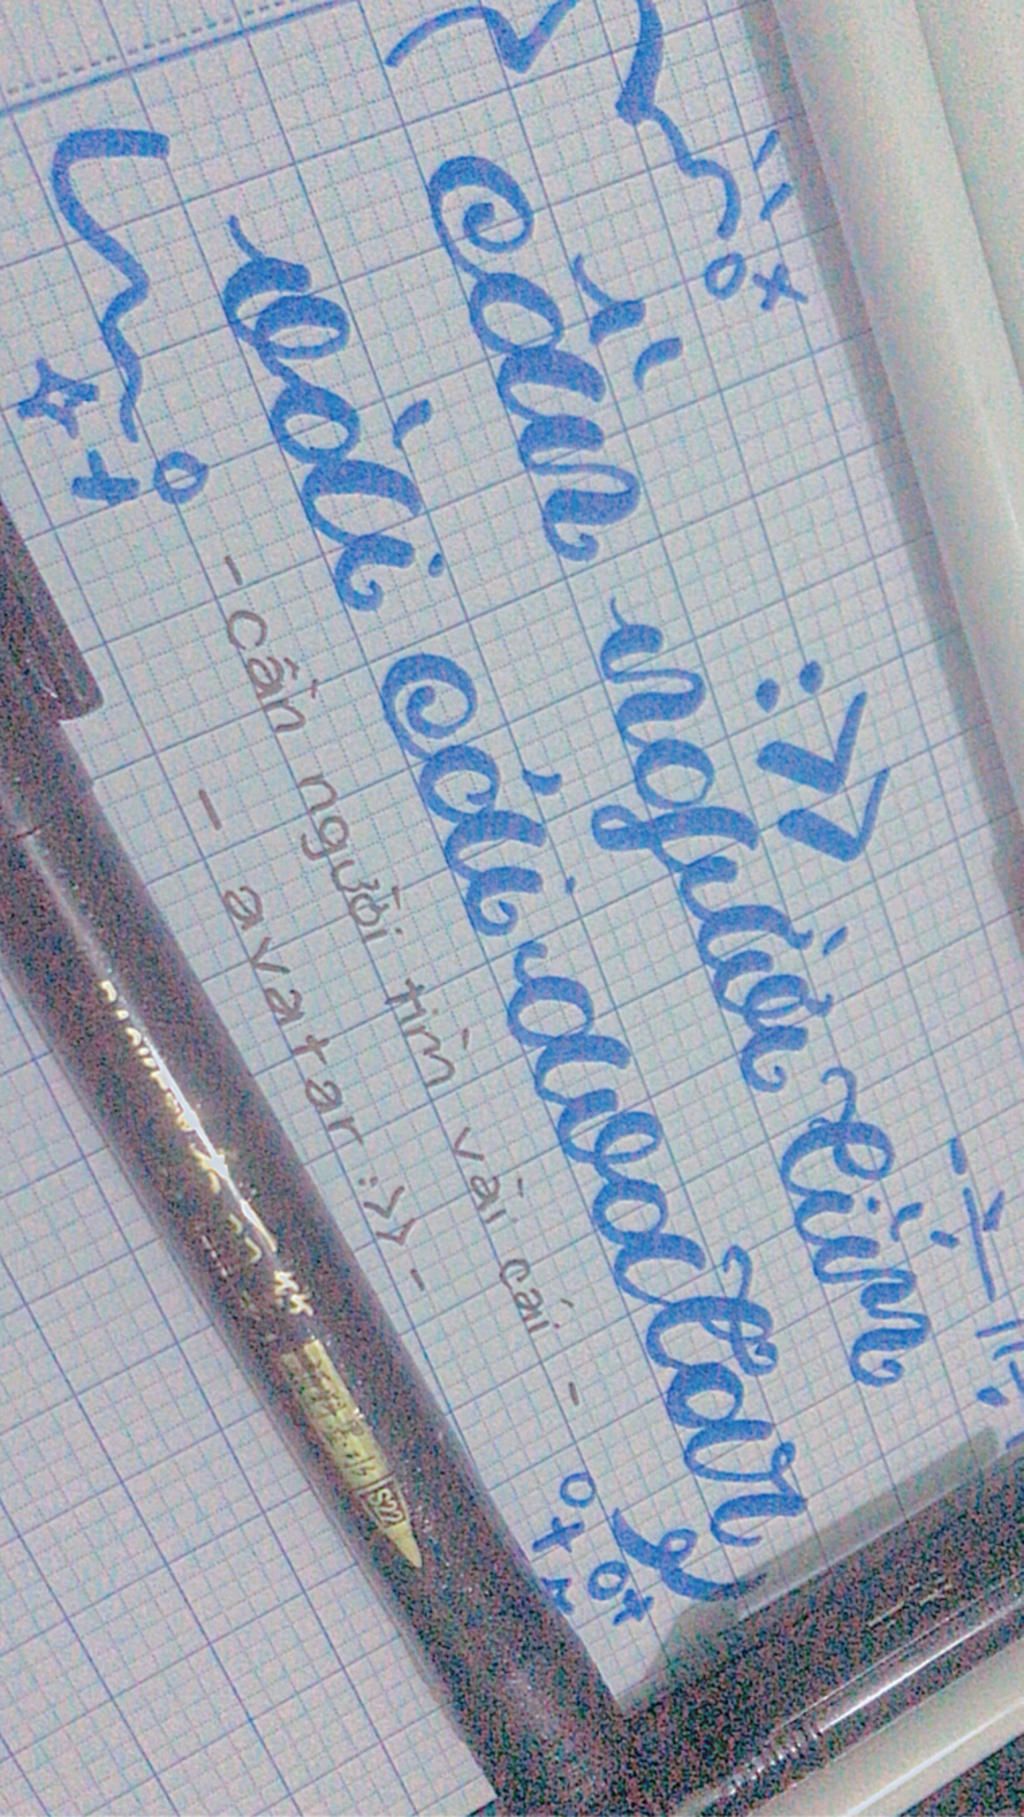 cần người tìm
vài cái avatar
:>>
- cần người tìm vài cái -
- avatar :>> -